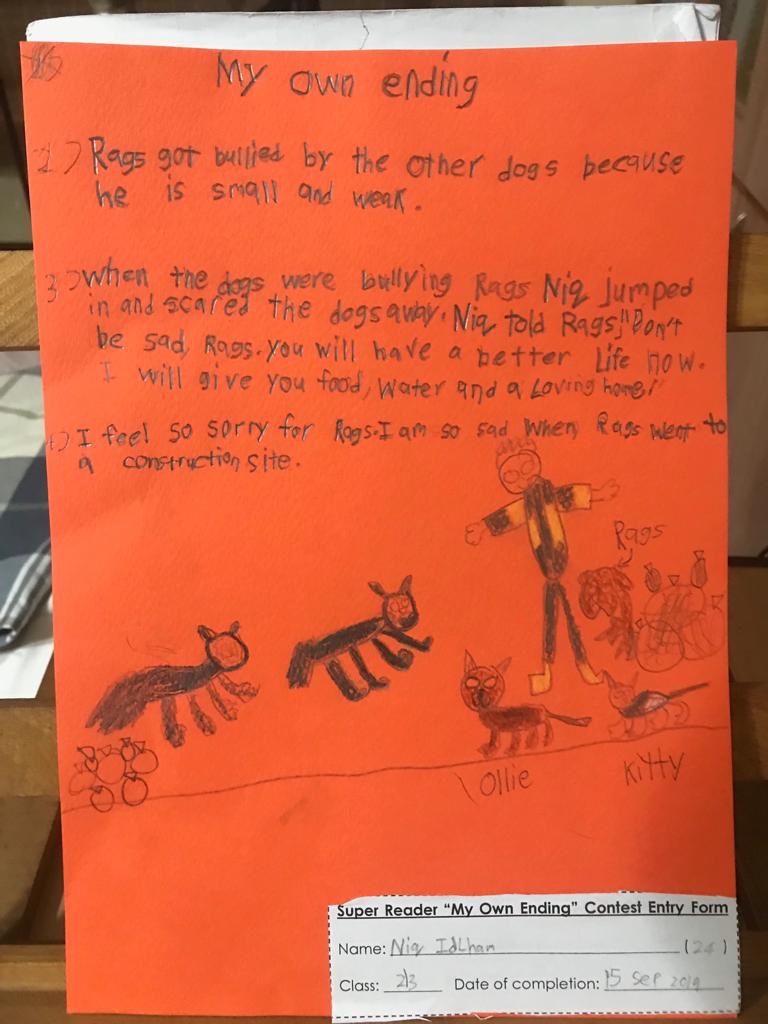 My own ending
1) Rags got bullied by the other dogs because
he is small and weak.
3) when the dogs were bullying Rags Niq jumped
in and scared the dogs away. Niq told Rags," Don't
be sad, Rags. you will have a better Life now.
I will give you food, water and a Loving home!"
4) I feel so sorry for Rags. I am so sad when Rags went to
a construction site.
Rags
Ollie
Kitty
Super Reader "My Own Ending" Contest Entry Form
Name: Niq IdLhan (24)
Class: 2/3 Date of completion: 15 Sep 2019